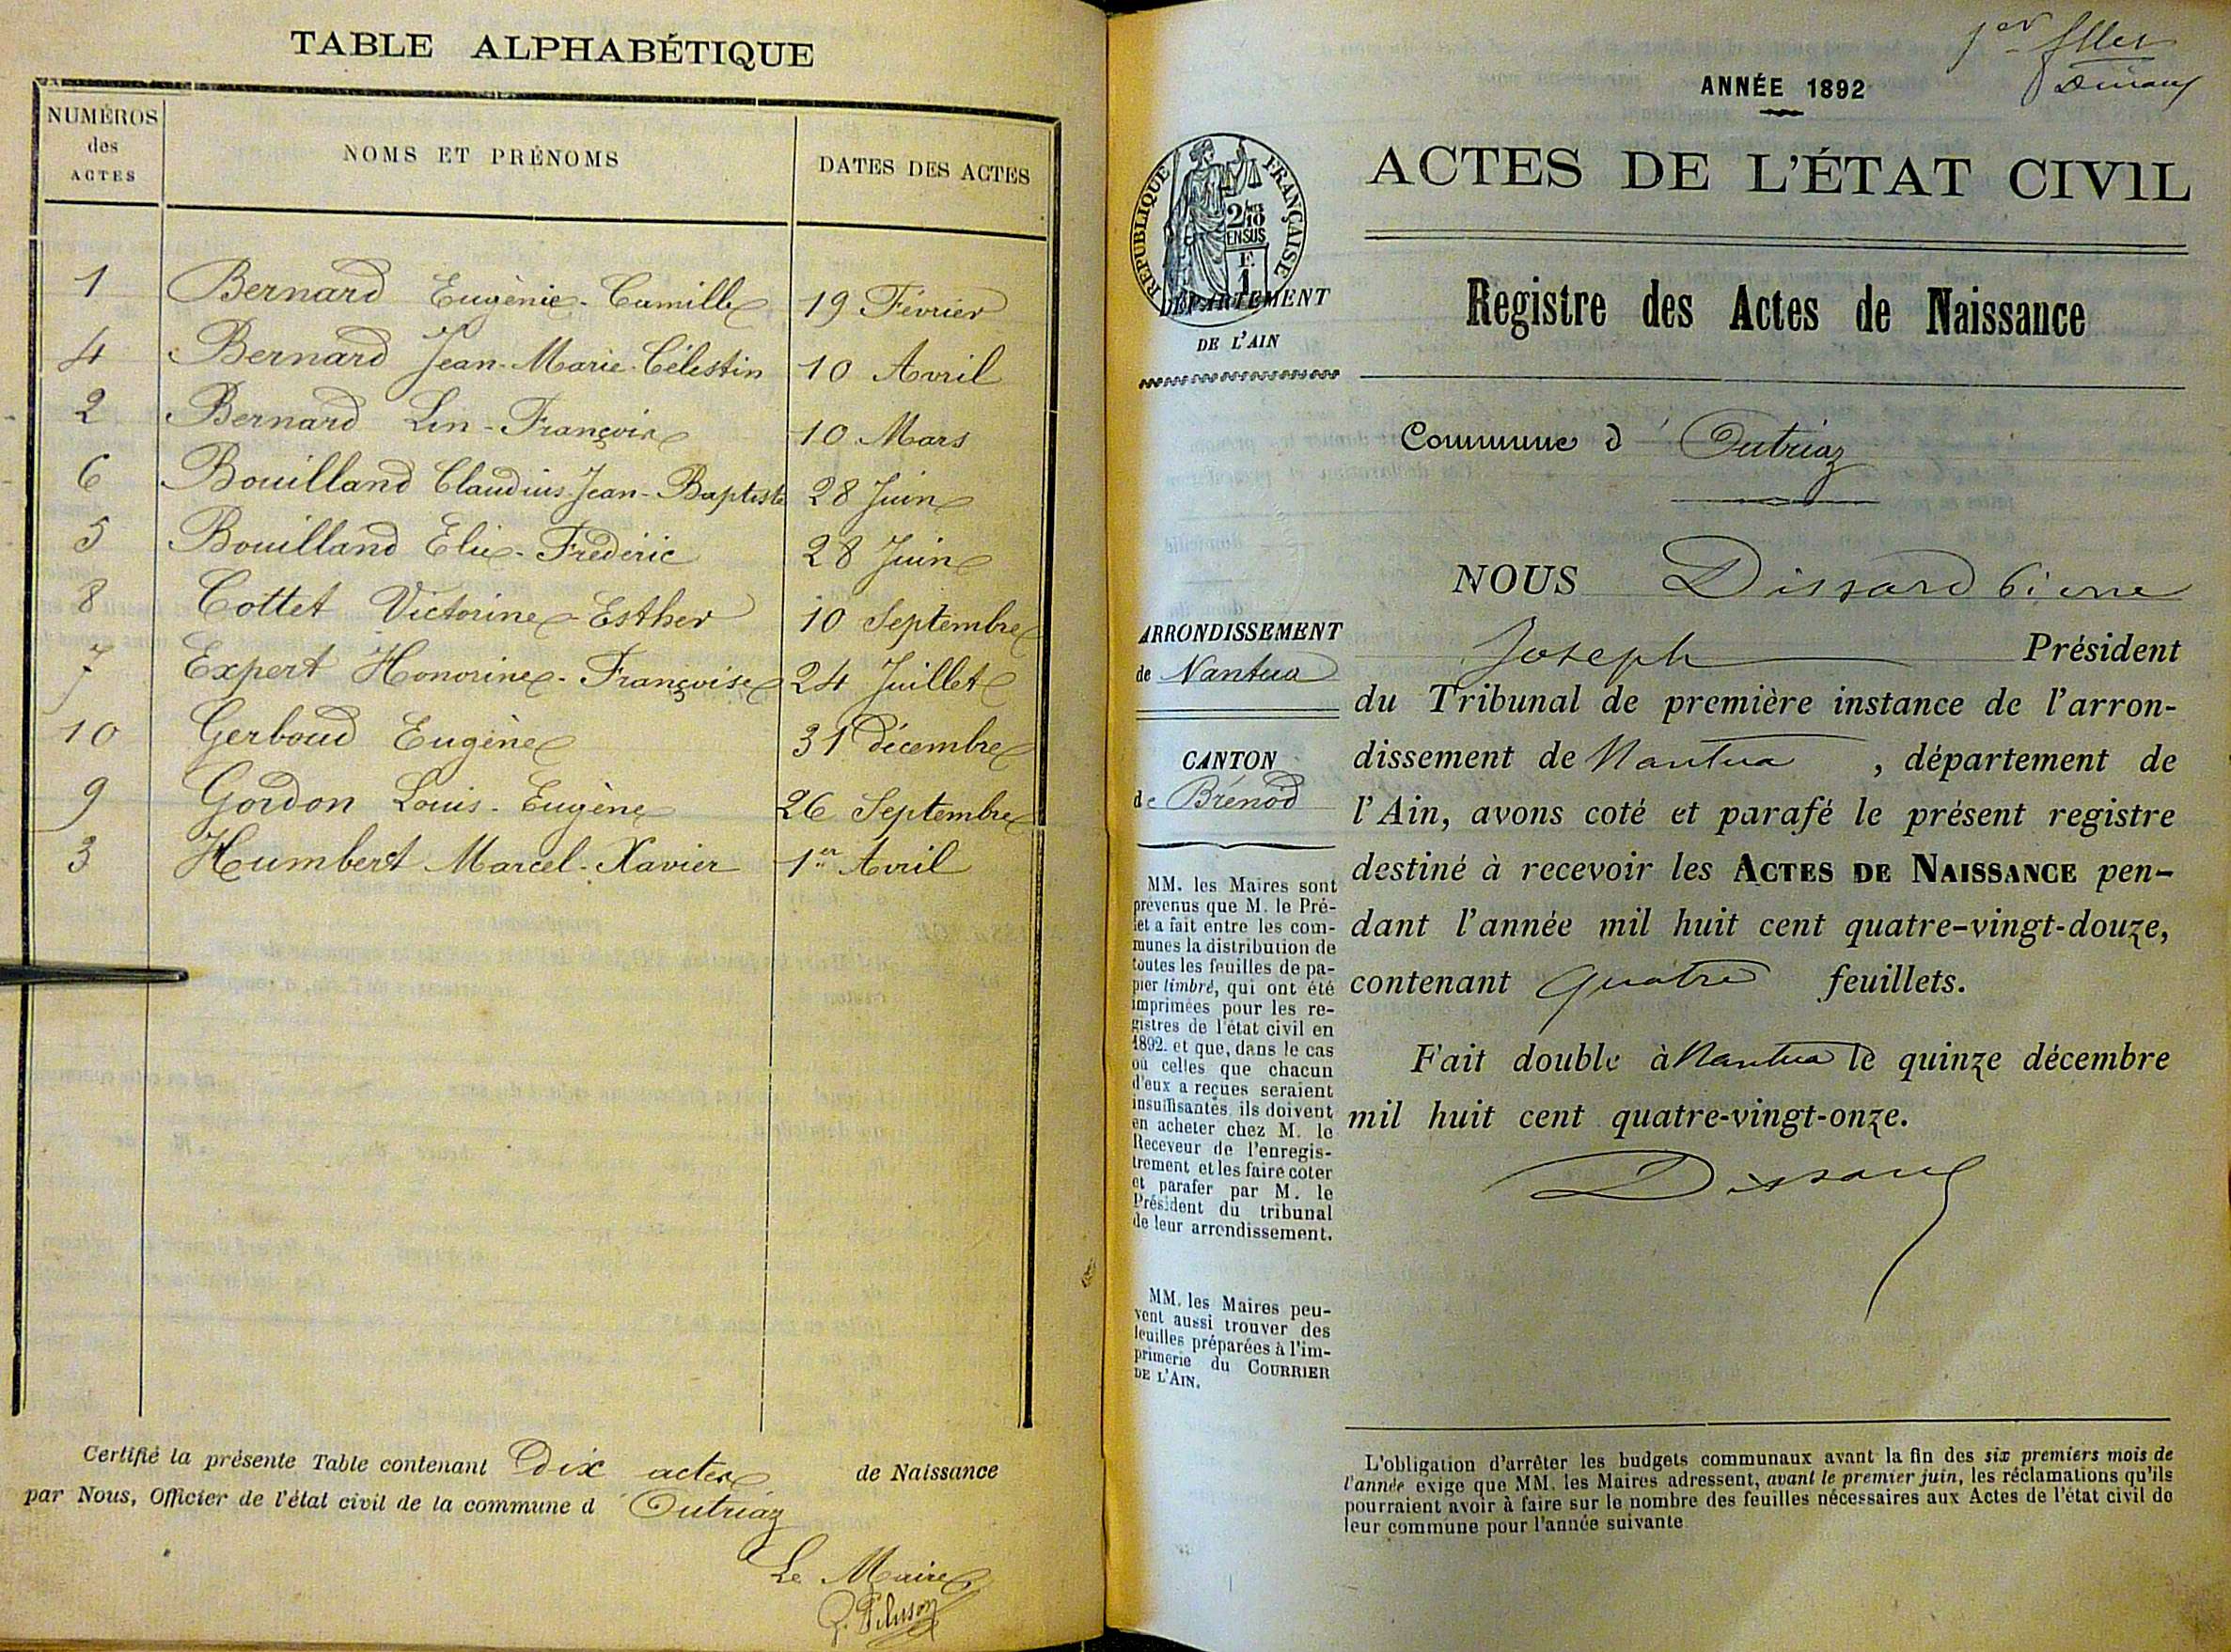 TABLE ALPHABÉTIQUE
NUMÉROS
des
ACTES
NOMS ET PRÉNOMS
DATES DES ACTES
1 Bernard Eugénie-Camille 19 Février
4 Bernard Jean-Marie-Célestin 10 Avril
2 Bernard Lin-François 10 Mars
6 Bouilland Claudius Jean-Baptiste 28 Juin
5 Bouilland Elie-Frédéric 28 Juin
8 Cottet Victorine-Esther 10 Septembre
7 Expert Honorine-Françoise 24 Juillet
10 Gerboud Eugène 31 décembre
9 Gordon Louis-Eugène 26 Septembre
3 Humbert Marcel-Xavier 1er Avril
Certifié la présente Table contenant Dix actes de Naissance
par Nous, Officier de l'état civil de la commune d'Outriaz
Le Maire
1er
ANNÉE 1892
RÉPUBLIQUE FRANÇAISE
2/10
EN SUS
F.
1
ACTES DE L'ÉTAT CIVIL
DÉPARTEMENT
DE L'AIN
Registre des Actes de Naissance
Commune d'Outriaz
ARRONDISSEMENT
de Nantua
CANTON
de Brénod
MM. les Maires sont
prévenus que M. le Pré-
fet a fait entre les com-
munes la distribution de
toutes les feuilles de pa-
pier timbré, qui ont été
imprimées pour les re-
gistres de l'état civil en
1892. et que, dans le cas
où celles que chacun
d'eux a reçues seraient
insuffisantes, ils doivent
en acheter chez M. le
Receveur de l'enregis-
trement et les faire coter
et parafer par M. le
Président du tribunal
de leur arrondissement.
MM. les Maires peu-
vent aussi trouver des
feuilles préparées à l'im-
primerie du COURRIER
DE L'AIN.
NOUS Dissard Pierre
Joseph Président
du Tribunal de première instance de l'arron-
dissement de Nantua, département de
l'Ain, avons coté et parafé le présent registre
destiné à recevoir les ACTES DE NAISSANCE pen-
dant l'année mil huit cent quatre-vingt-douze,
contenant quatre feuillets.
Fait double à Nantua le quinze décembre
mil huit cent quatre-vingt-onze.
Dissard
L'obligation d'arrêter les budgets communaux avant la fin des six premiers mois de
l'année exige que MM. les Maires adressent, avant le premier juin, les réclamations qu'ils
pourraient avoir à faire sur le nombre des feuilles nécessaires aux Actes de l'état civil de
leur commune pour l'année suivante